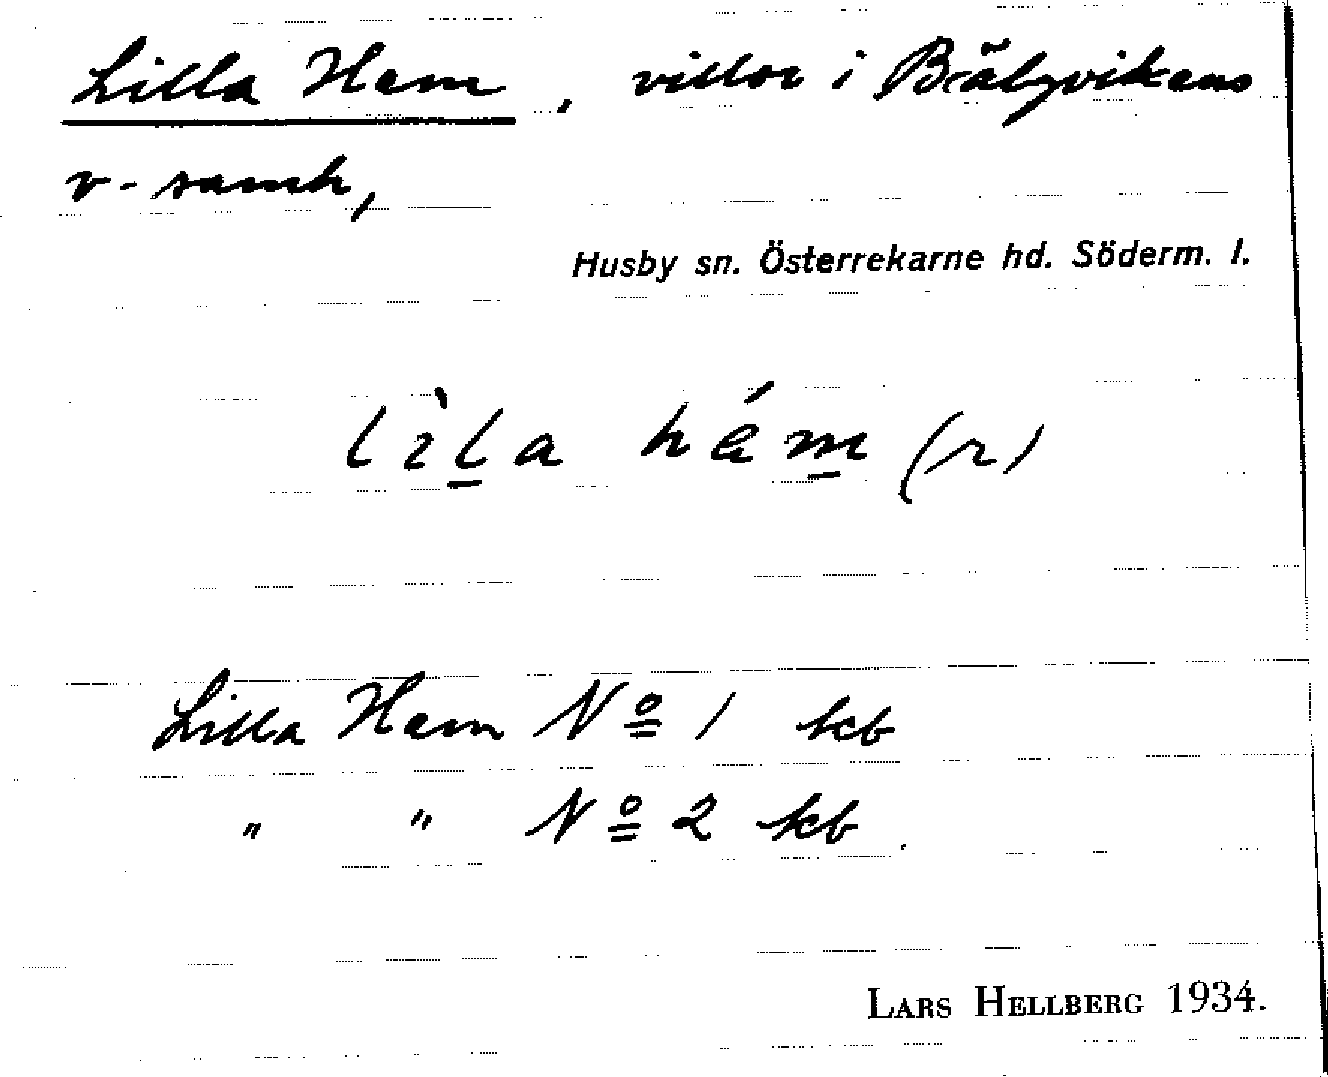 Lilla Hem, villor i Bälgvikens
v-samh,
Husby sn. Österrekarne hd. Söderm. l.
lìla hém (r)
Lilla Hem Nº 1 kb
" " Nº 2 kb.
LARS HELLBERG 1934.